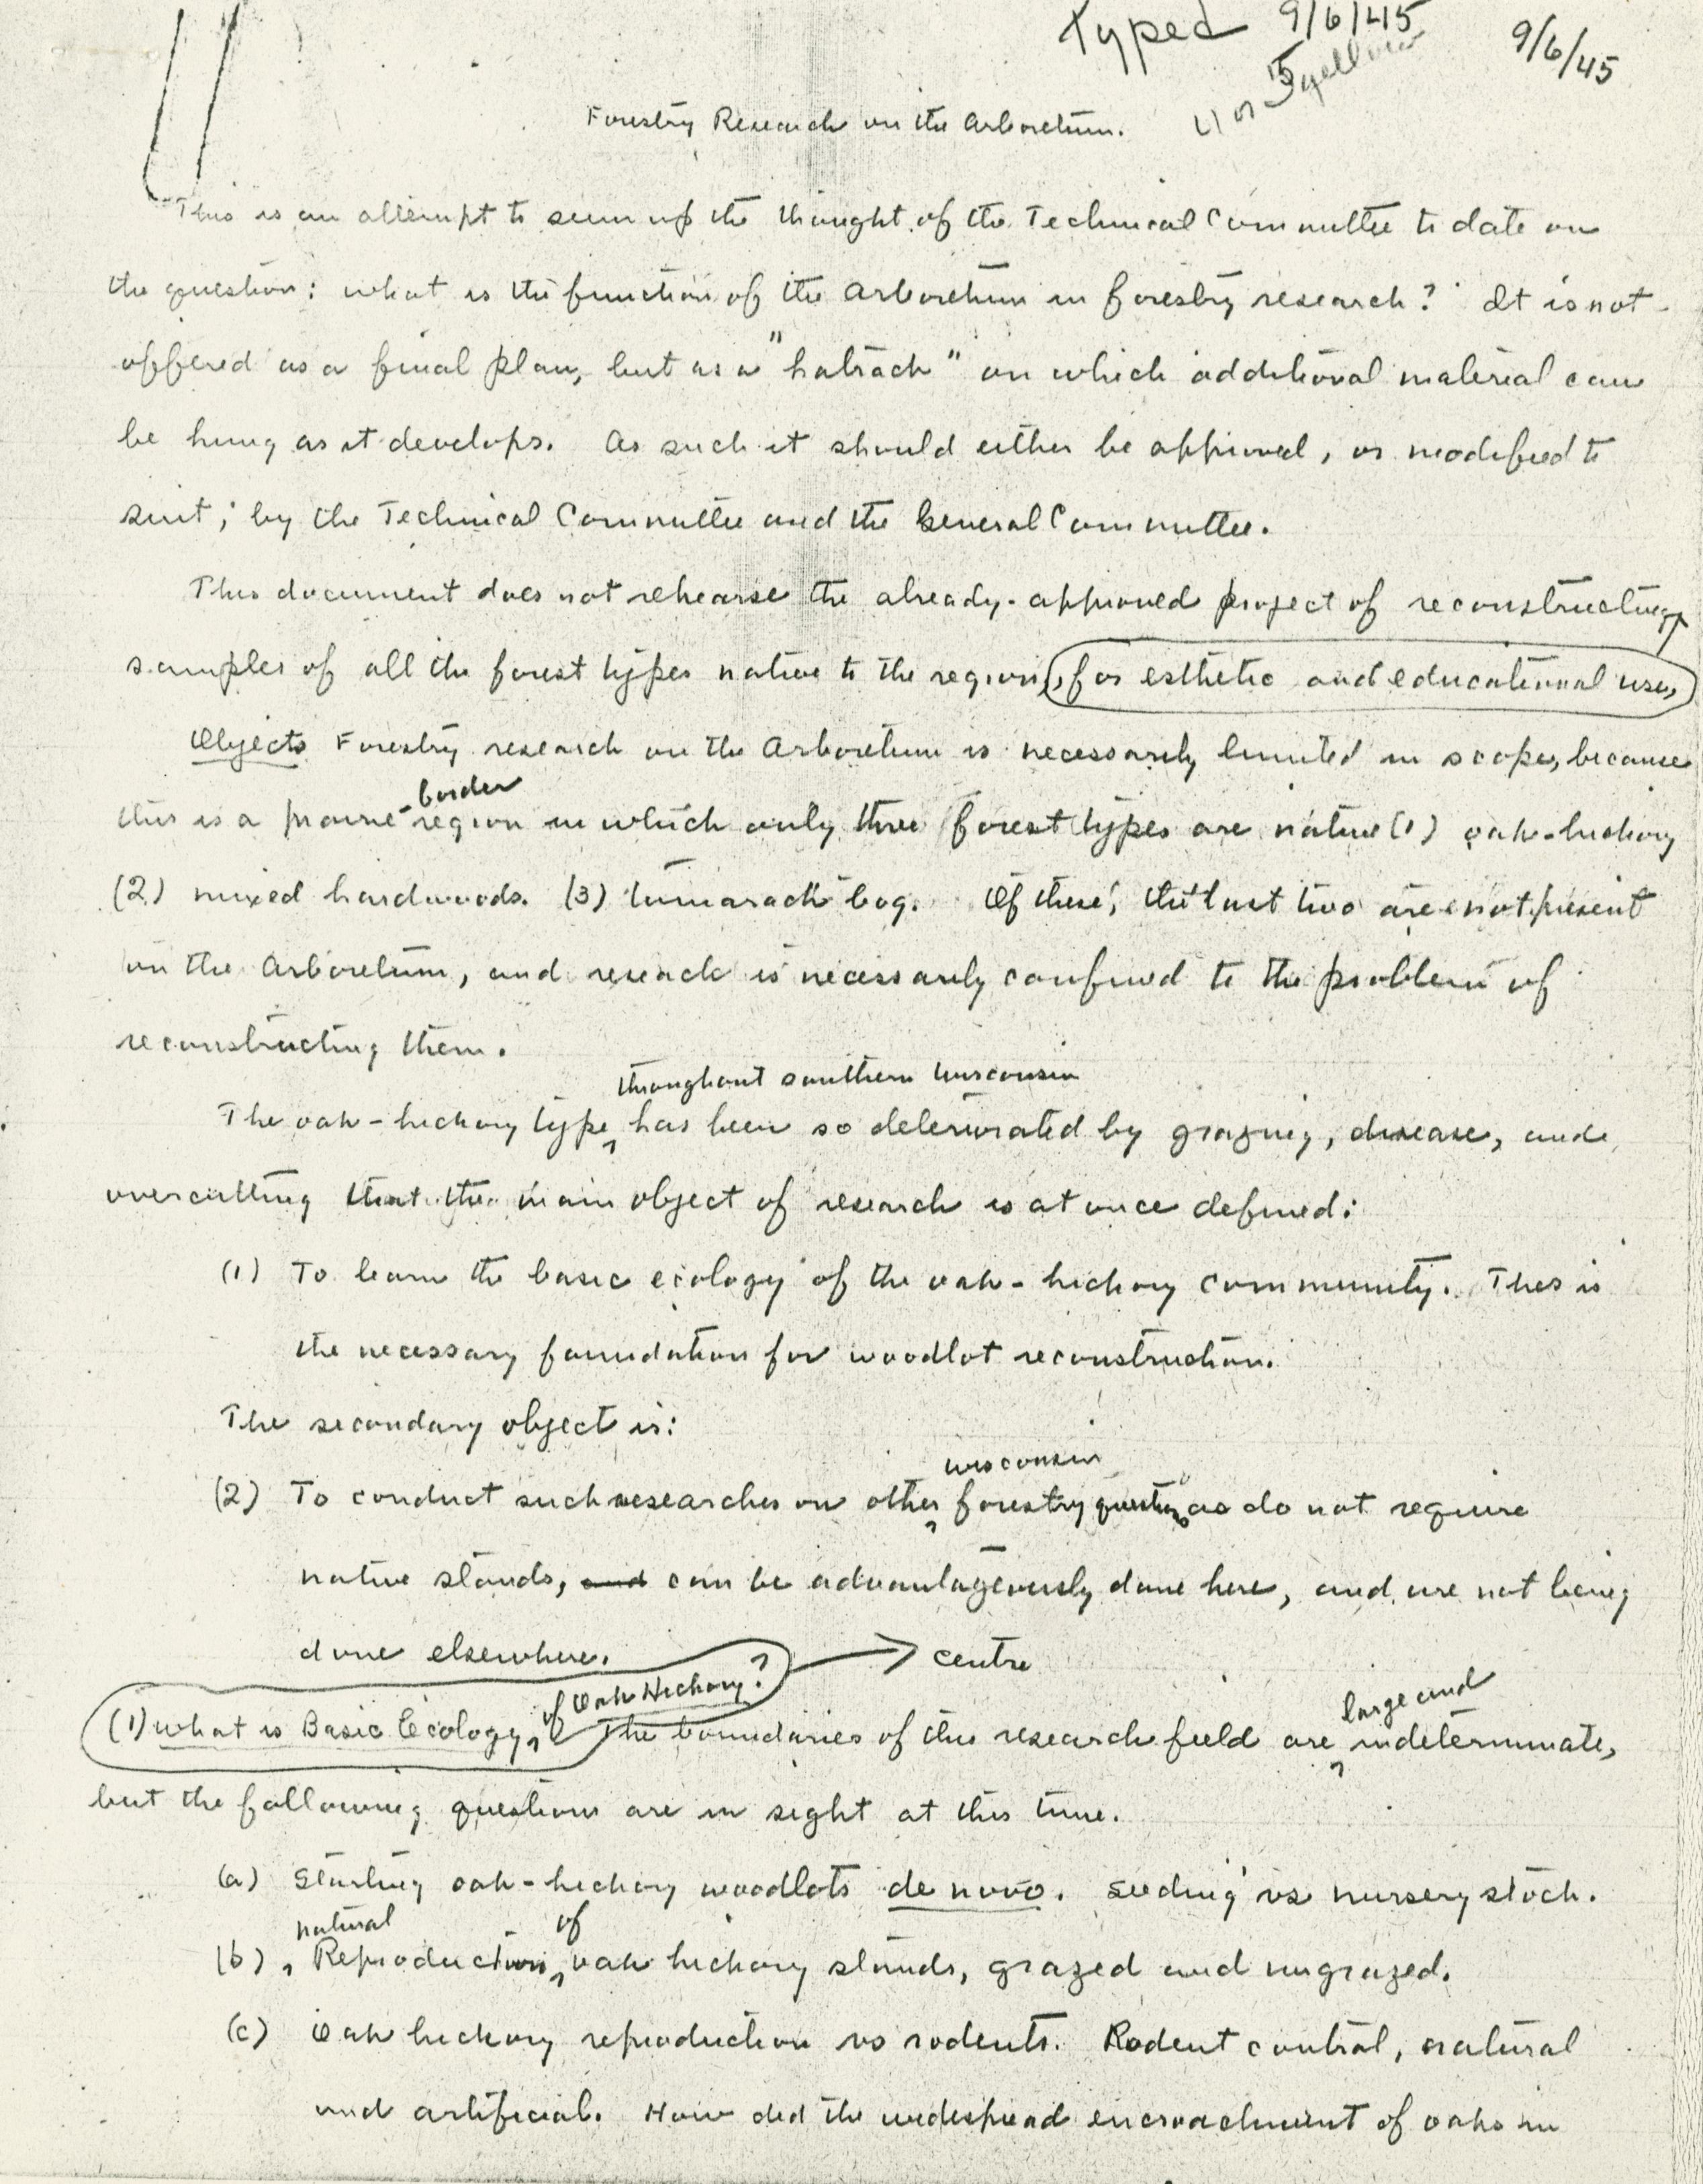 Typed 9/6/45
9/6/45
yellow
Forestry Research on the Arboretum.
This is an attempt to sum up the thought of the Technical Committee to date on
the question: what is the function of the Arboretum in forestry research? It is not
offered as a final plan, but as a "hatrack" on which additional material can
be hung as it develops. As such it should either be approved, or modified to
suit, by the Technical Committee and the General Committee.
This document does not rehearse the already-approved project of reconstructing
samples of all the forest types native to the region, for esthetic and educational use,
Objects Forestry research on the Arboretum is necessarily limited in scope, because
border
this is a prairie-region in which only three forest types are native (1) oak-hickory
(2) mixed hardwoods. (3) tamarack bog. Of these, the last two are not present
on the Arboretum, and research is necessarily confined to the problem of
reconstructing them.
throughout southern Wisconsin
The oak-hickory type has been so deteriorated by grazing, disease, and
overcutting that the main object of research is at once defined:
(1) To learn the basic ecology of the oak-hickory community. This is
the necessary foundation for woodlot reconstruction.
The secondary object is:
Wisconsin
(2) To conduct such researches on other forestry questions as do not require
native stands, and can be advantageously done here, and are not being
done elsewhere. → centre
of Oak Hickory? large and
(1) What is Basic Ecology, The boundaries of this research field are indeterminate,
but the following questions are in sight at this time.
(a) Starting oak-hickory woodlots de novo. Seeding vs nursery stock.
natural of
(b) Reproduction oak hickory stands, grazed and ungrazed.
(c) Oak hickory reproduction vs rodents. Rodent control, natural
and artificial. How did the widespread encroachment of oaks in